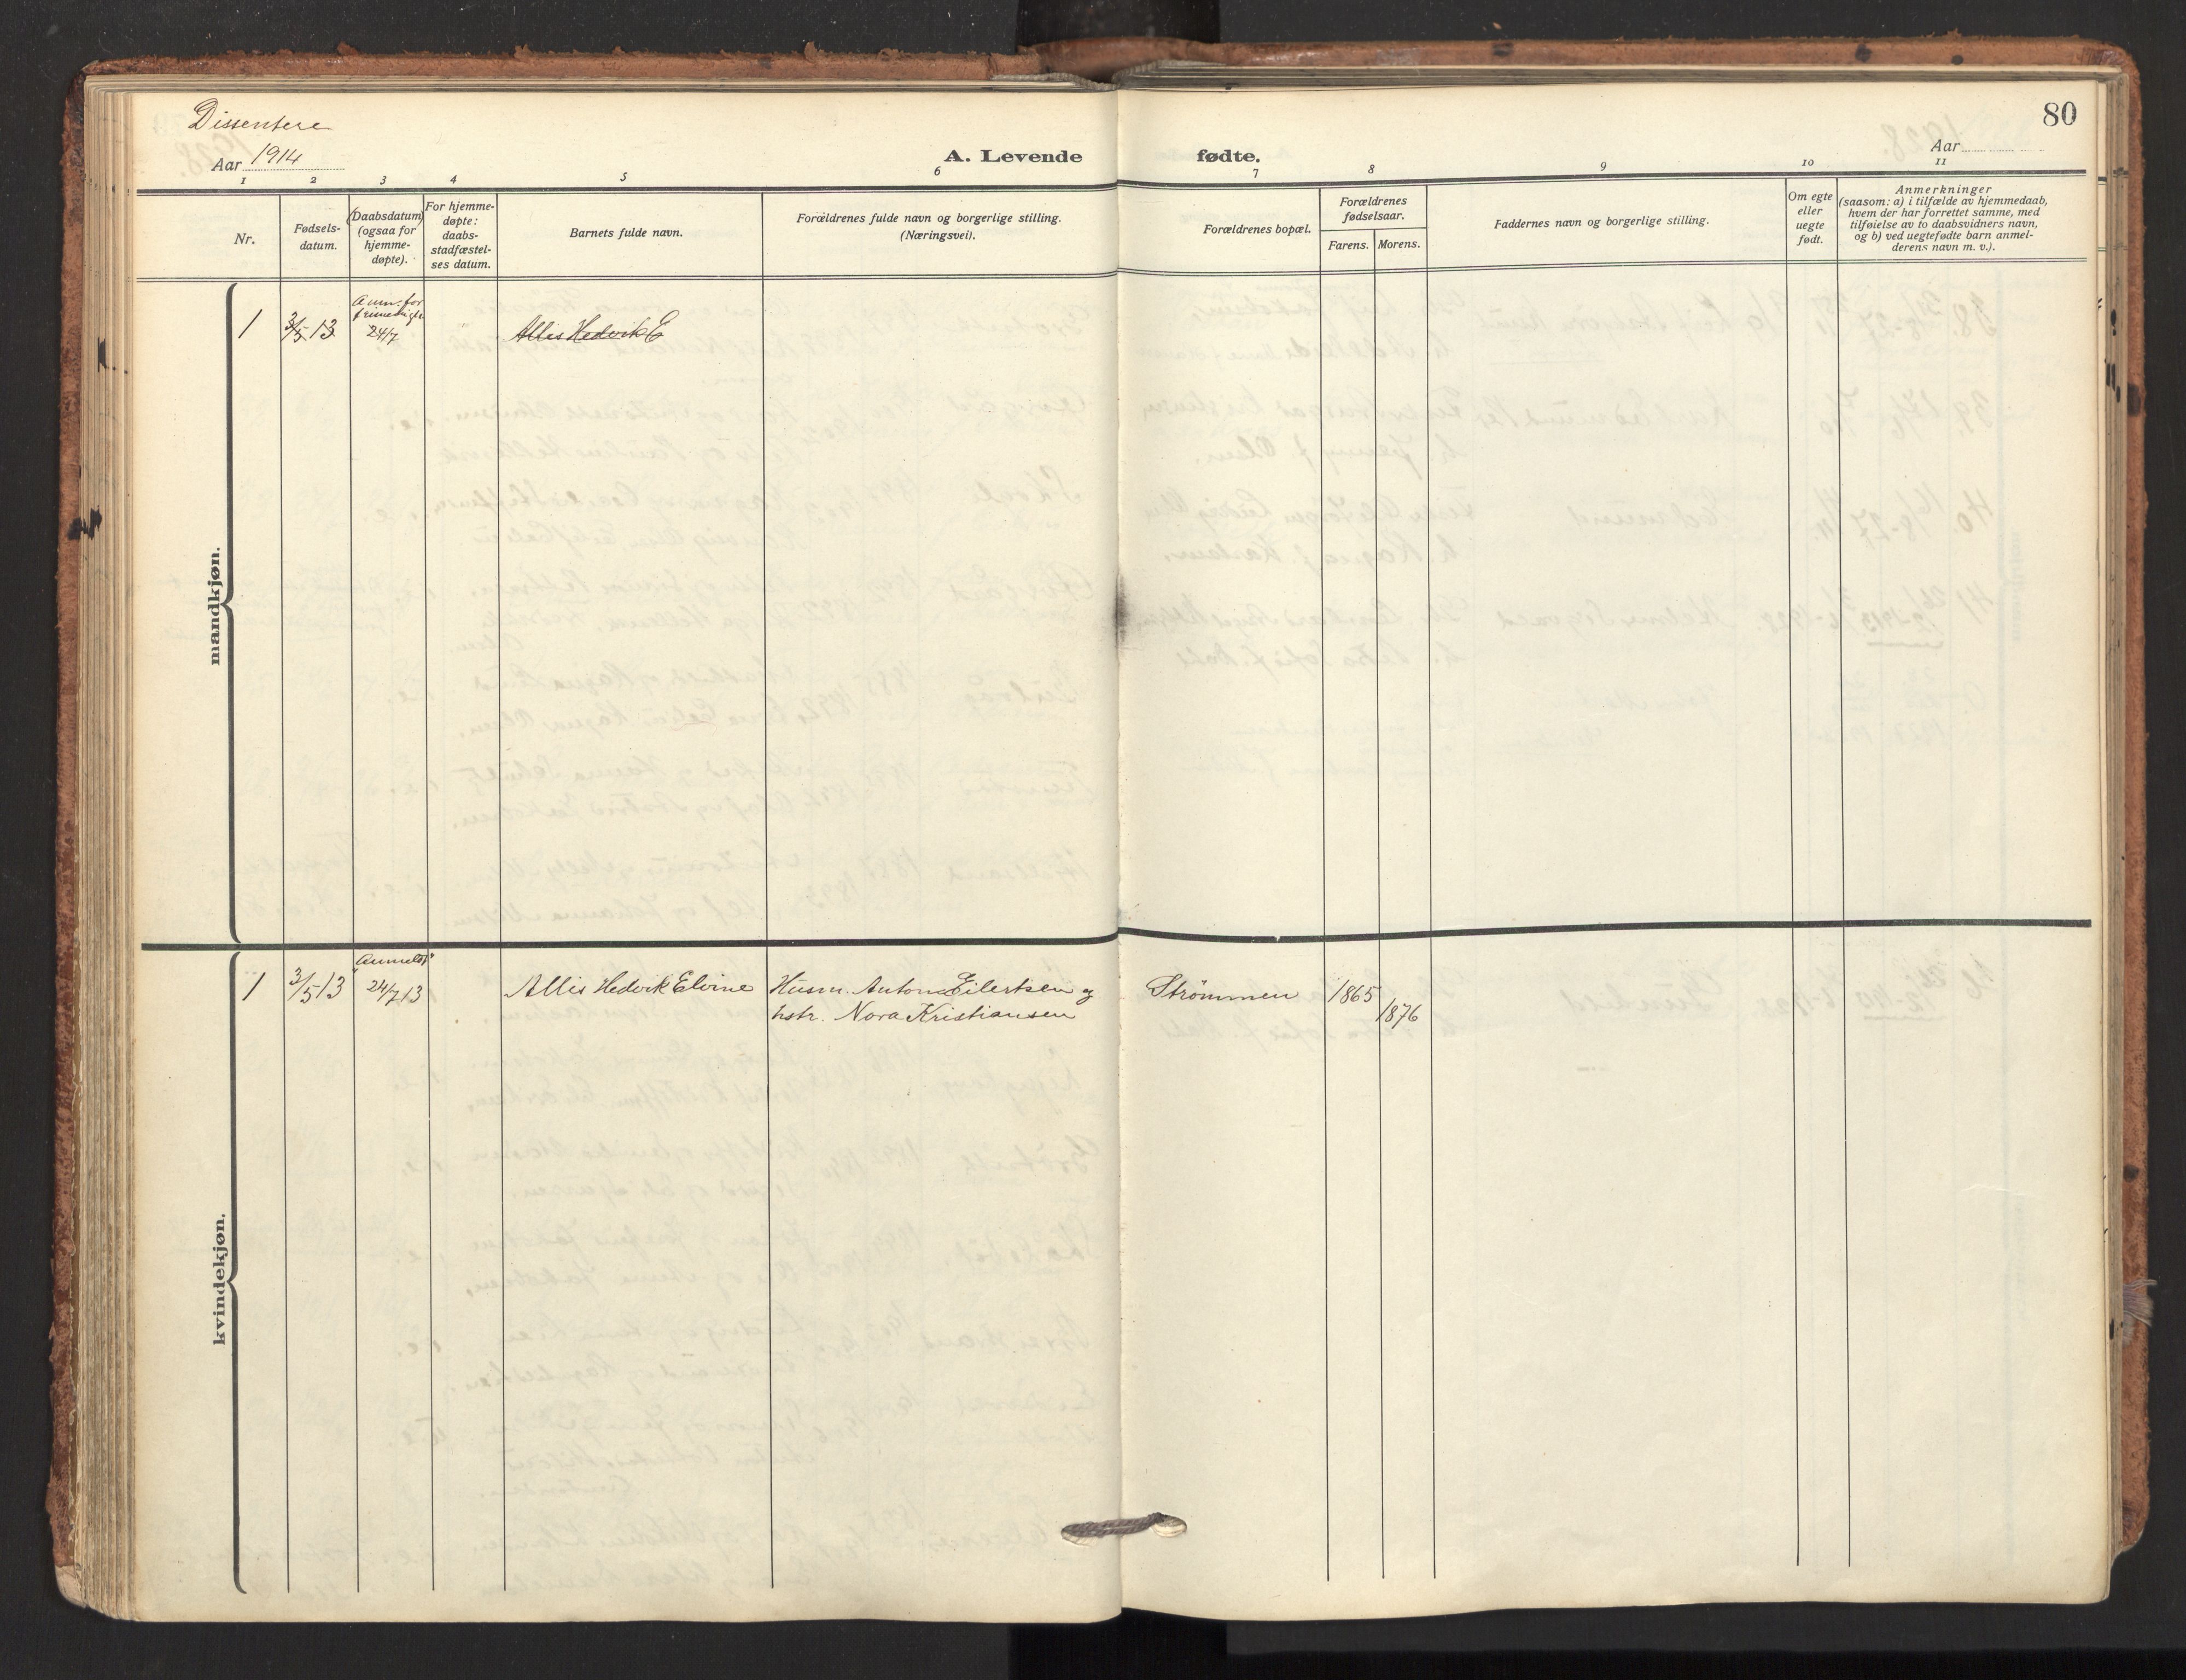 Dissentere
80
Aar 1914
A. Levende
fødte.
Aar
1 2 3 4 5 6 7 8 9 10 11
Nr.
Fødsels-
datum.
(Daabsdatum)
(ogsaa for
hjemme-
døpte).
For hjemme-
døpte:
daabs-
stadfæstel-
ses datum.
Barnets fulde navn.
Forældrenes fulde navn og borgerlige stilling.
(Næringsvei).
Forældrenes bopæl.
Forældrenes
fødselsaar.
Farens. Morens.
Faddernes navn og borgerlige stilling.
Om egte
eller
uegte
født.
Anmerkninger
(saasom: a) i tilfælde av hjemmedaab,
hvem der har forrettet samme, med
tilføielse av to daabsvidners navn,
og b) ved uegtefødte barn anmel-
derens navn m. v.).
mandkjøn.
1 3/5 13 24/7 " Allis Hedvik E
kvindekjøn.
"Anmeldt"
1 3/5 13 24/7 13 Allis Hedvik Elvine Husm. Anton Eilertsen og Strømmen 1865
hstr. Nora Kristiansen 1876